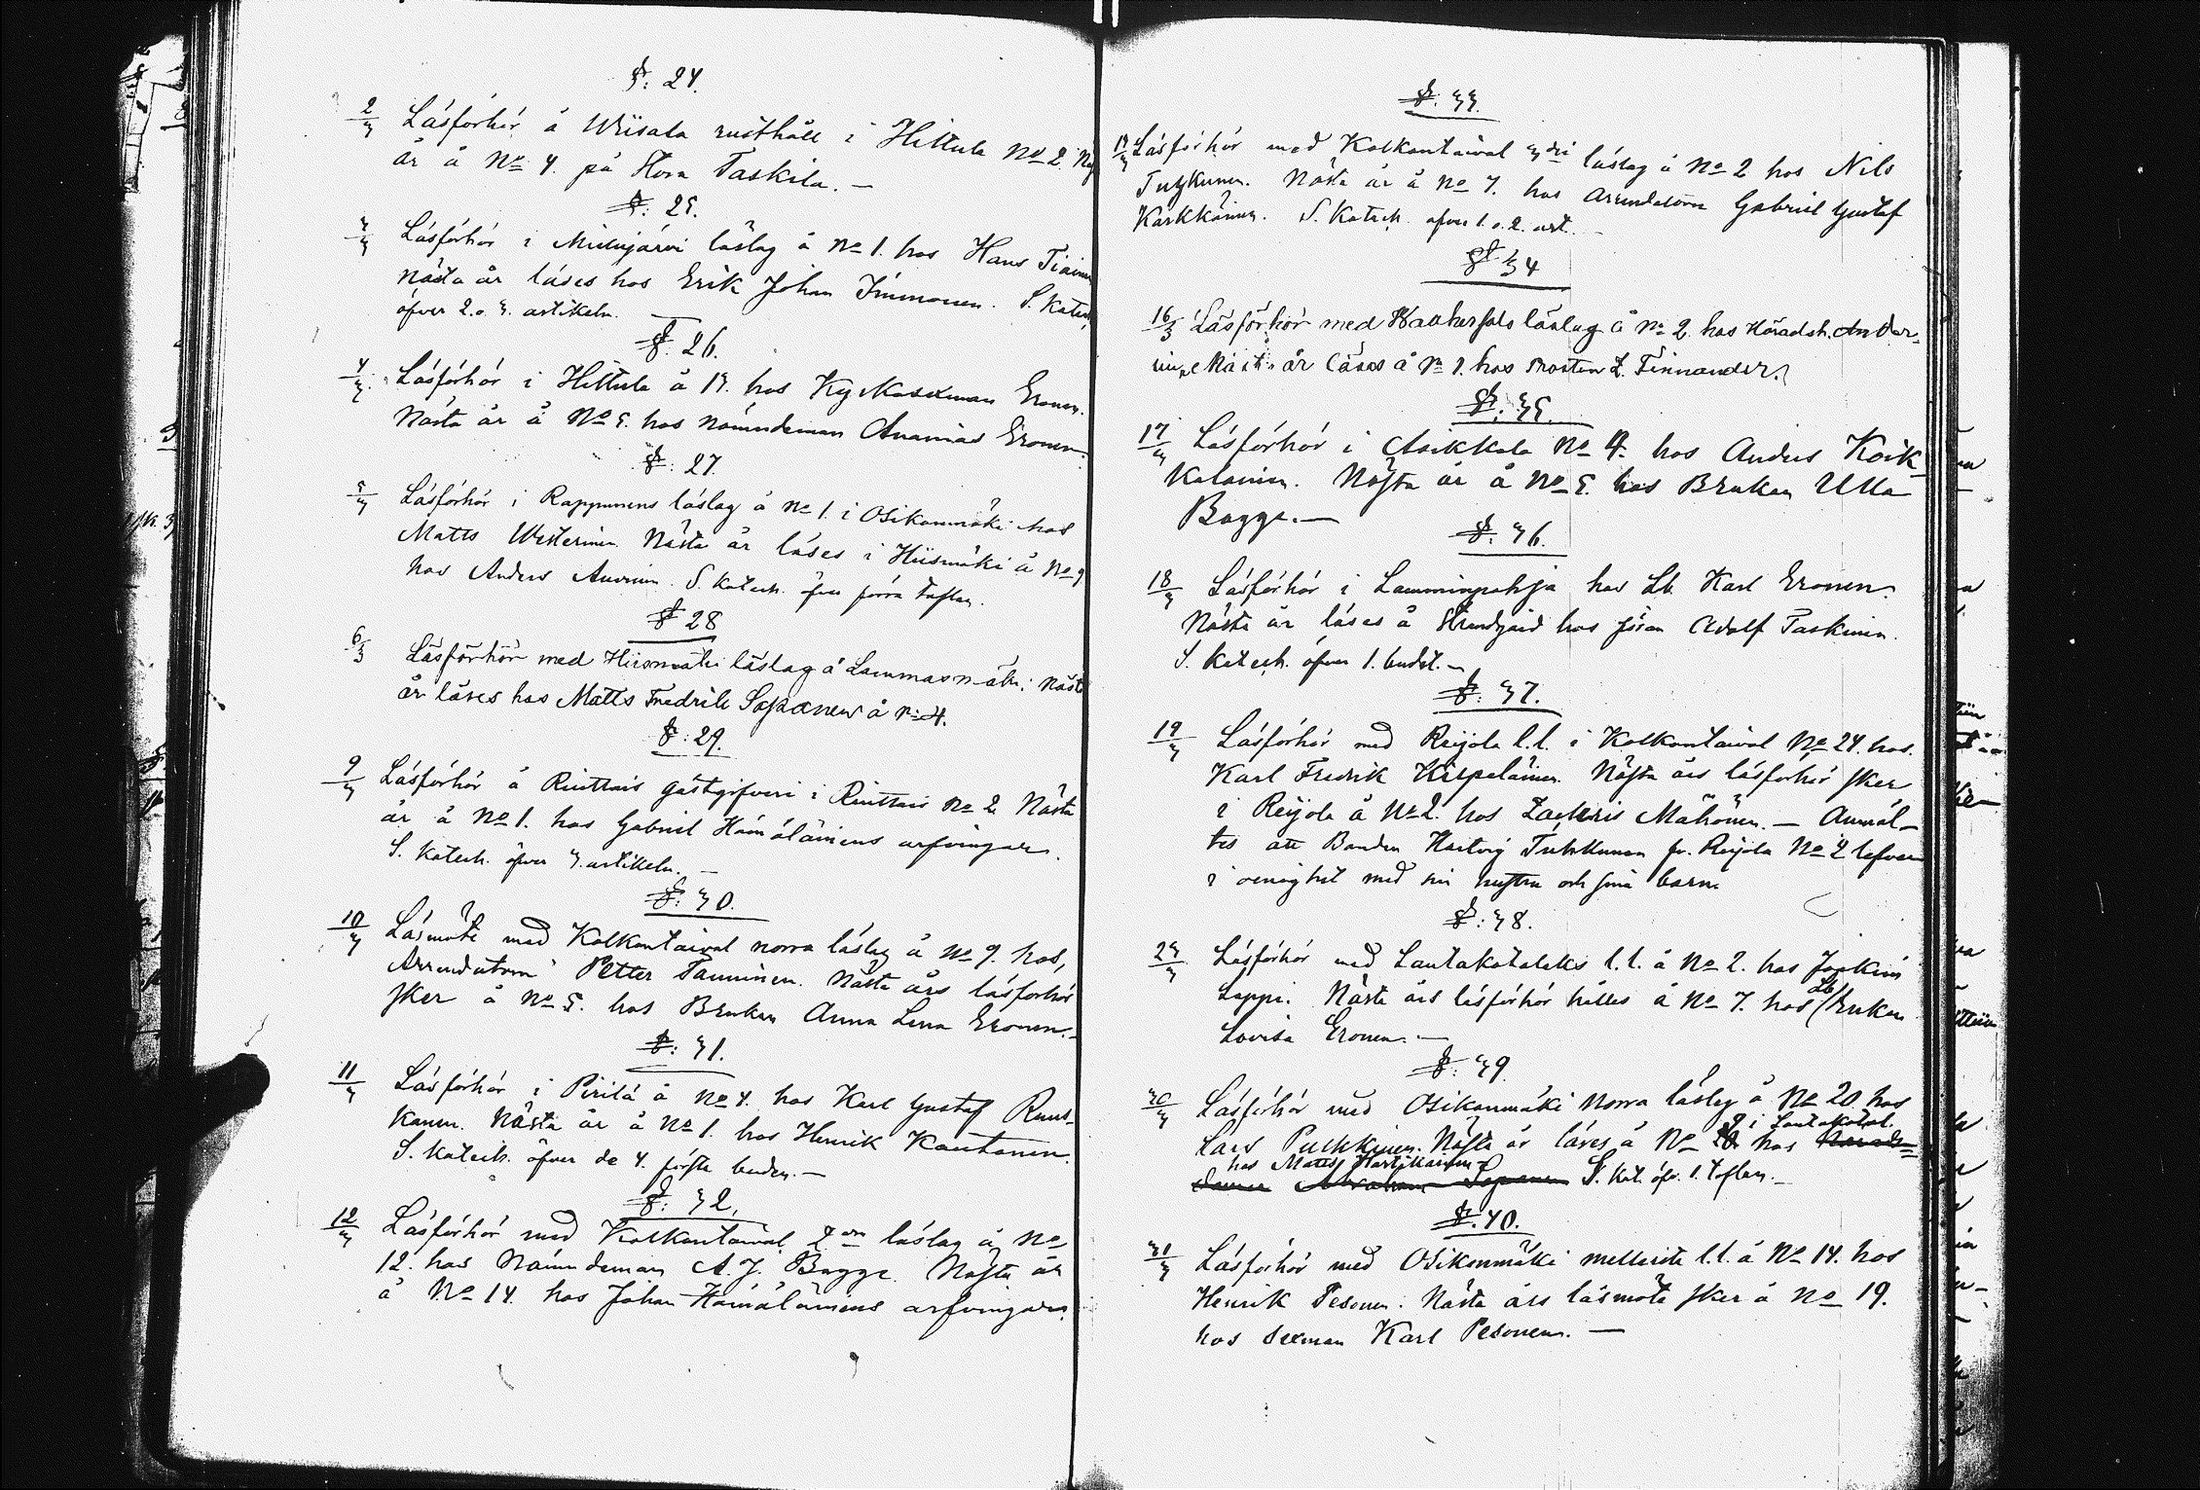 §: 24.
2/3 Läsförhör å Wiisala rusthåll i Hittula No 2. Näs
år å No 4. på Stora Taskila. —
§: 25.
3/3 Läsförhör i Miilujärvi läslag å No 1. hos Hans Tiainen
Nästa år läses hos Erik Johan Immonen. S. Katech.
öfver 2. o. 3. artikeln. —
§: 26.
4/3 Läsförhör i Hittula å 13. hos Kyrkosexman Eronen.
Nästa år å No 5. hos Nämndeman Ananias Eronen.
§: 27.
5/3 Läsförhör i Rappunens läslag å No 1. i Osikonmäki hos
Matts Westerinen. Nästa år läses i Hiismäki å No 9
hos Anders Auvinen. S. Katech. öfver förra taflan.
§ 28
6/3 Läsförhör med Hiismäki läslag å Lammasmäki; Nästa
år läses hos Matts Fredrik Sopanen å No 4.
§: 29.
9/3 Läsförhör å Ruittais gästgifveri i Ruittais No 2. Nästa
år å No 1. hos Gabriel Hämäläinens arfvingar.
S. Katech. öfver 3. artikeln. —
§: 30.
10/3 Läsmöte med Kolkontaival norra läslag å No 9. hos,
Arrendatorn Petter Tamminen. Nästa års läsförhör
sker å No 5. hos Brukan Anna Lena Eronen.
§: 31.
11/3 Läsförhör i Pirilä å No 4. hos Karl Gustaf Ruus-
kanen. Nästa år å No 1. hos Henrik Kautonen.
S. Katech. öfver de 4. första buden. —
§: 32.
12/3 Läsförhör med Kolkontaival 2dra läslag å No
12. hos Nämndeman A. J. Bagge. Nästa år
å No 14. hos Johan Hämäläinens arfvingar.
§: 33.
13/3 Läsförhör med Kolkontaival 3dje läslag å No 2 hos Nils
Tuhkunen. Nästa år å No 7. hos Arrendatorn Gabriel Gustaf
Karkkäinen. S. Katech. öfver 1. o. 2. art. —
§ 34
16/3 Läsförhör med läslag å No 2. hos Häradsh. Ander-
Nästa år läses å No 1. hos Prosten L. Finnander.
§: 35.
17/3 Läsförhör i Asikkala No 4. hos Anders Koik-
kalainen. Nästa år å No 5. hos Brukan Ulla
Bagge. —
§: 36.
18/3 Läsförhör i Lamminpohja hos Lb. Karl Eronen.
Nästa år läses å Strandgård hos Göran Adolf Paskinen.
S. Katech. öfver 1. budet. —
§: 37.
19/3 Läsförhör med Reijola l.l. i Kolkontaival No 24. hos.
Karl Fredrik Kirpeläinen. Nästa års läsförhör sker
i Reijola å No 2. hos Zachris Mähönen. — Anmäl-
tes att Bonden Hartvig Tuhkunen fr. Reijola No 2 lefver
i oenighet med sin hustru och små barn.
§: 38.
23/3 Läsförhör med Lautakotalaks l.l. å No 2. hos Joakim
Lappi. Nästa års läsförhör hålles å No 7. hos Lb. Enkan
Lovisa Eronen. —
§: 39.
30/3 Läsförhör med Osikonmäki Norra läslag å No 20. hos
9 i Lautakotal.
Lars Pulkkinen. Nästa år läses å No 20 hos Nämnde-
hos Matts Hartikainen
Abraham Sopanen S. Kat. öfv. 1. taflan. —
§: 40.
31/3 Läsförhör med Osikonmäki mellersta l.l. å No 14. hos
Henrik Pesonen. Nästa års läsmöte sker å No 19.
hos sexman Karl Pesonen. —